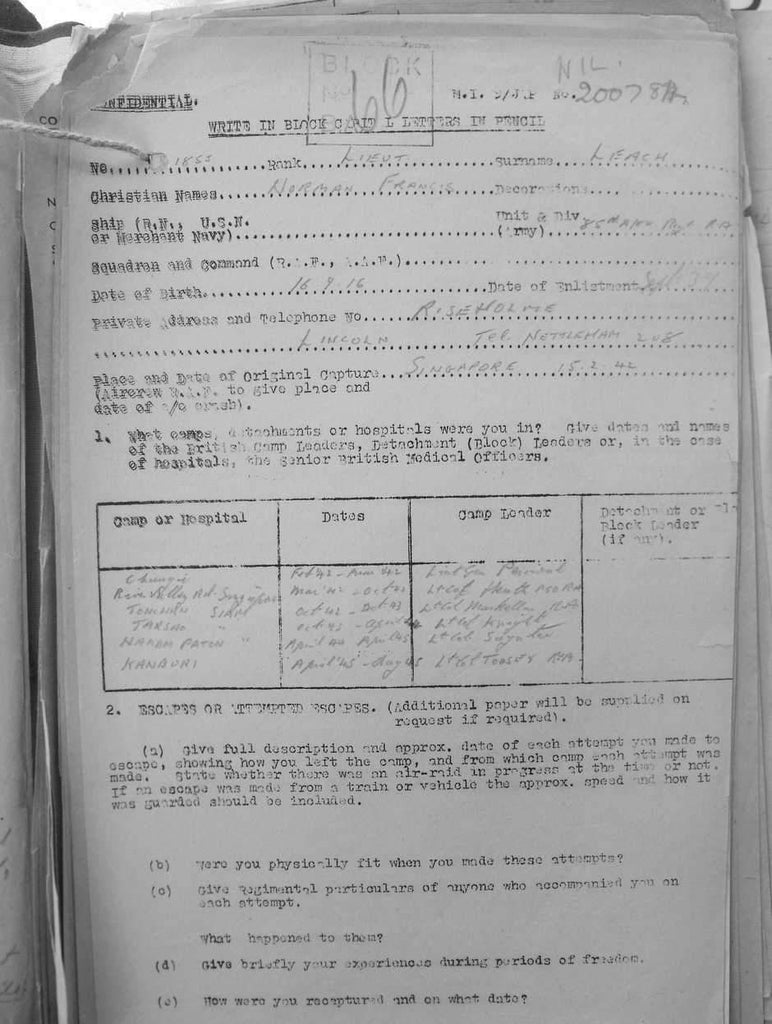 CONFIDENTIAL.
BLOCK
66
NIL.
M.I. 9/JAP No. 200784
WRITE IN BLOCK CAPITAL LETTERS IN PENCIL
No. 1855 Rank LIEUT. Surname LEACH
Christian Names NORMAN FRANCIS Decorations
Ship (R.N., U.S.N. Unit & Div
or Merchant Navy) (Army) 85th RA
Squadron and Command (R.A.F., A.A.F.)
Date of Birth 16.9.16 Date of Enlistment Sept 39
Private Address and Telephone No. RISEHOLME
LINCOLN TEL NETTLEHAM 208
Place and Date of Original Capture SINGAPORE 15.2.42
(Aircrew R.A.F. to give place and
date of a/c crash).
1. What camps, detachments or hospitals were you in? Give dates and names
of the British Camp Leaders, Detachment (Block) Leaders or, in the case
of hospitals, the Senior British Medical Officers.
Camp or Hospital Dates Camp Leader Detachment or
Block Leader
(if any).
Changi Feb 42 - 42 Lieut Gen Percival
River Valley Rd. Singapore Mar 42 - Oct 42 Lt Col
TONCHAN SIAM Oct 42 - Oct 43 Lt Col RA
TARSAO " Oct 43 - April 44 Lt Col Knight
NAKOM PATON " April 44 April 45 Lt Col
KANBURI April 45 - Aug 45 Lt Col TOOSEY RA
2. ESCAPES OR ATTEMPTED ESCAPES. (Additional paper will be supplied on
request if required).
(a) Give full description and approx. date of each attempt you made to
escape, showing how you left the camp, and from which camp each attempt was
made. State whether there was an air-raid in progress at the time or not.
If an escape was made from a train or vehicle the approx. speed and how it
was guarded should be included.
(b) Were you physically fit when you made these attempts?
(c) Give Regimental particulars of anyone who accompanied you on
each attempt.
What happened to them?
(d) Give briefly your experiences during periods of freedom.
(e) How were you recaptured and on what date?